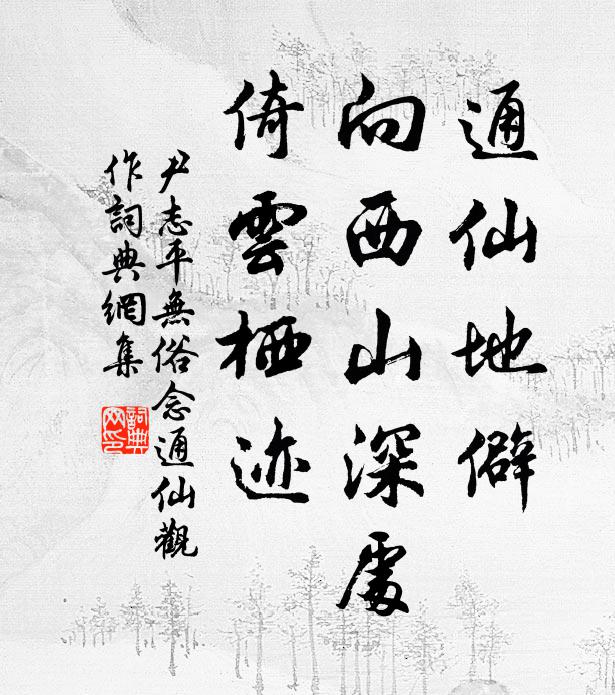 通仙地僻
向西山深處
倚雲栖迹
尹志平無俗念通仙觀
作詞典網集
詞典網印